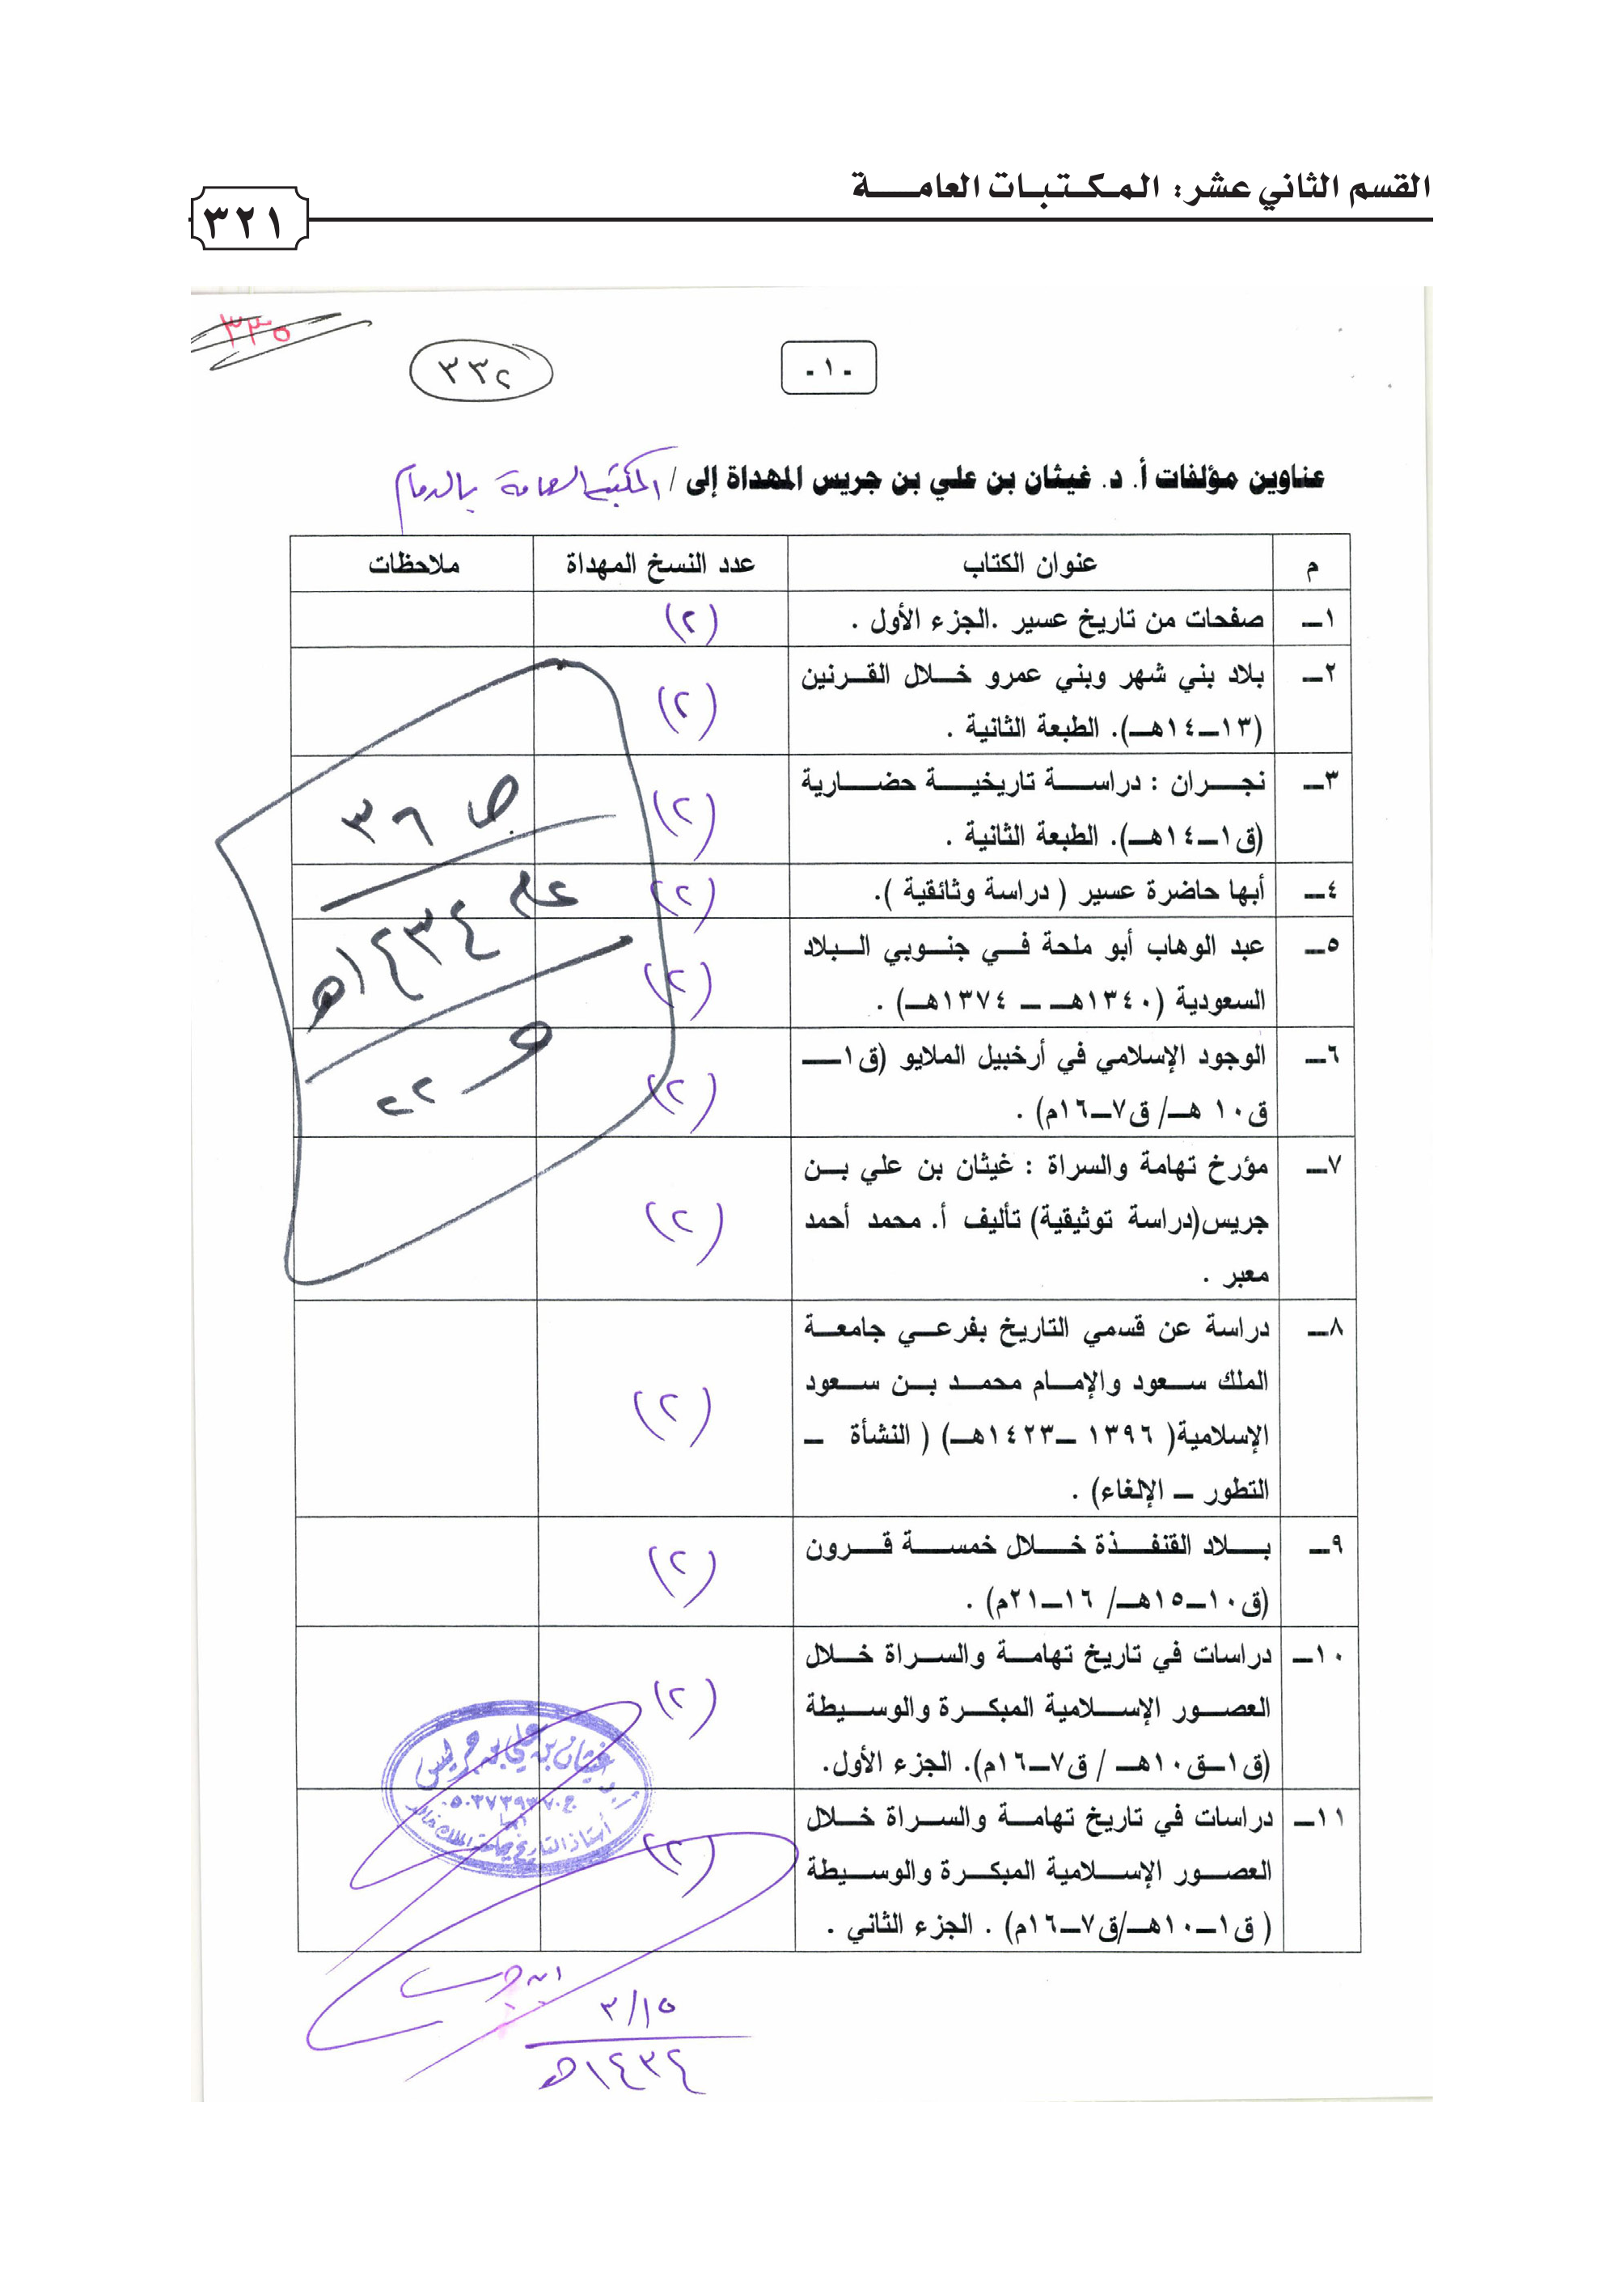 القسم الثاني عشر: المكتبات العامة
٣٢١
٣٣٥
٣٣٢
- ١ -
عناوين مؤلفات أ. د. غيثان بن علي بن جريس المهداة إلى / المكتبة العامة بالدمام
م عنوان الكتاب عدد النسخ المهداة ملاحظات
١ـ صفحات من تاريخ عسير .الجزء الأول . (٢)
٢ـ بلاد بني شهر وبني عمرو خلال القرنين
(١٣ـ١٤هـ). الطبعة الثانية . (٢)
٣ـ نجران : دراسة تاريخية حضارية
(ق١ـ١٤هـ). الطبعة الثانية . (٢)
٤ـ أبها حاضرة عسير ( دراسة وثائقية ). (٢)
٥ـ عبد الوهاب أبو ملحة في جنوبي البلاد
السعودية (١٣٤٠هـ ـ ١٣٧٤هـ) . (٢)
٦ـ الوجود الإسلامي في أرخبيل الملايو (ق١ـ
ق١٠ هـ/ ق٧ـ١٦م) . (٢)
٧ـ مؤرخ تهامة والسراة : غيثان بن علي بن
جريس(دراسة توثيقية) تأليف أ. محمد أحمد
معبر . (٢)
٨ـ دراسة عن قسمي التاريخ بفرعي جامعة
الملك سعود والإمام محمد بن سعود
الإسلامية( ١٣٩٦ ـ١٤٢٣هـ) ( النشأة ـ
التطور ـ الإلغاء) . (٢)
٩ـ بلاد القنفذة خلال خمسة قرون
(ق١٠ـ١٥هـ/ ١٦ـ٢١م) . (٢)
١٠ـ دراسات في تاريخ تهامة والسراة خلال
العصور الإسلامية المبكرة والوسيطة
(ق١ـق١٠هـ / ق٧ـ١٦م). الجزء الأول. (٢)
١١ـ دراسات في تاريخ تهامة والسراة خلال
العصور الإسلامية المبكرة والوسيطة
( ق١ـ١٠هـ/ق٧ـ١٦م) . الجزء الثاني . (٢)
ص ٣٦
عام ١٤٣٤هـ
٢٢
أ.د غيثان بن علي بن جريس
ج٠٥٠٣٧٣٩٣٧٠
أبها
أستاذ التاريخ بجامعة الملك خالد
ابن جريس
٣/١٥
١٤٣٤هـ